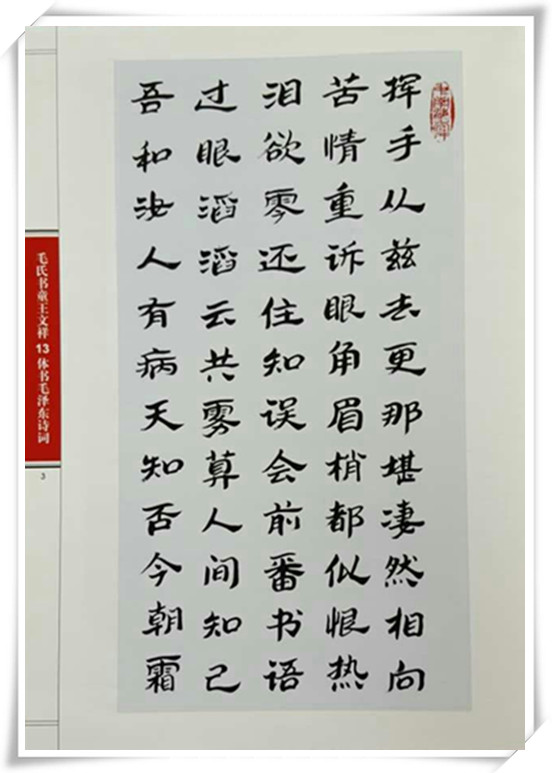 挥手从兹去更那堪凄然相向
苦情重诉眼角眉梢都似恨热
泪欲零还住知误会前番书语
过眼滔滔云共雾算人间知己
吾和汝人有病天知否今朝霜
毛氏书童王文祥13体书毛泽东诗词
3